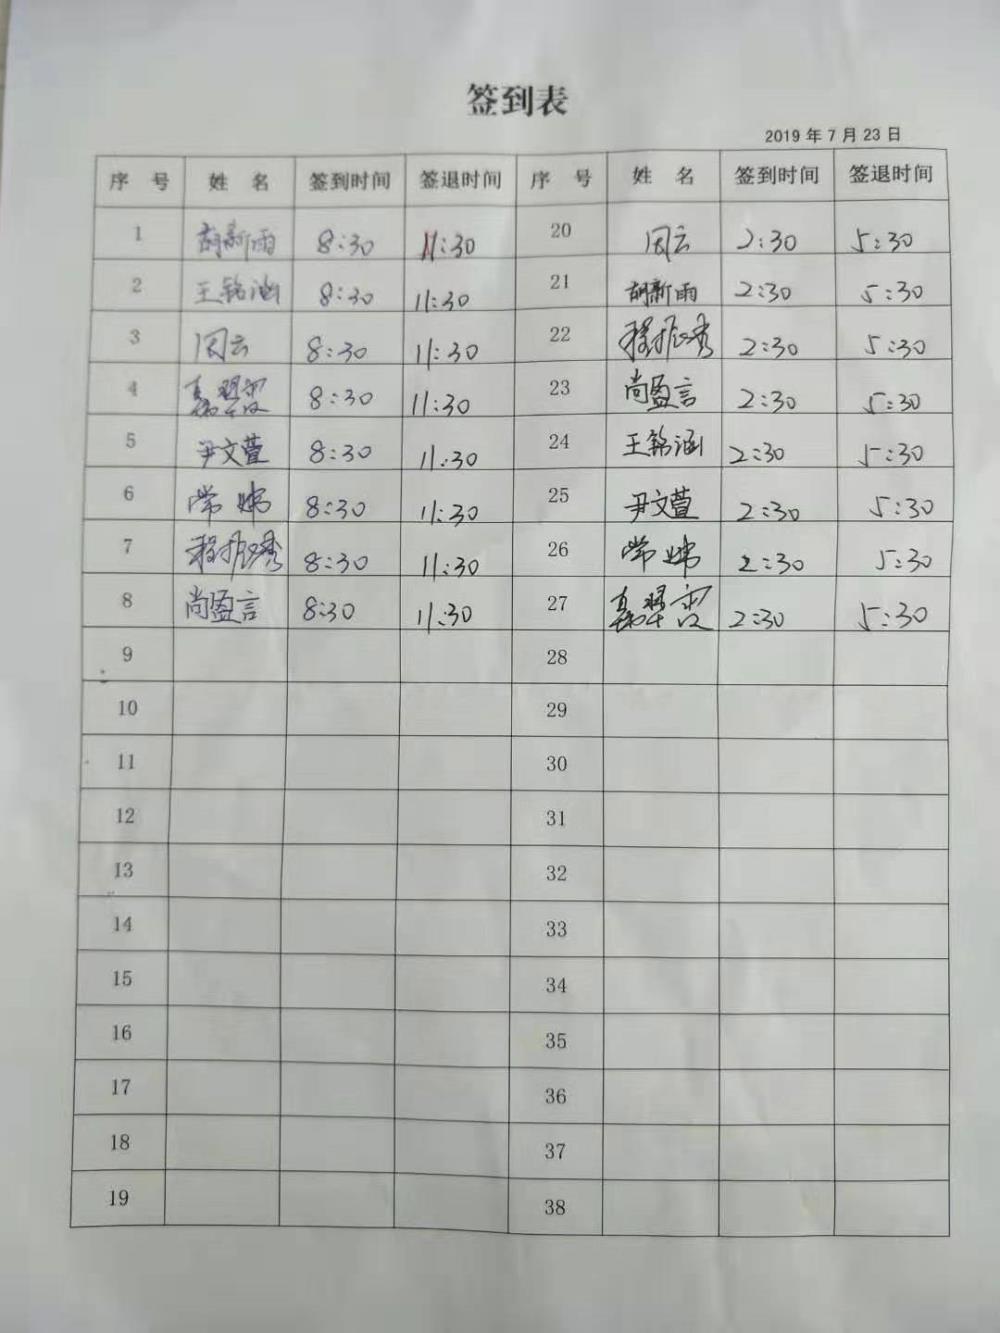 签到表
2019 年 7 月 23 日
序 号 姓 名 签到时间 签退时间 序 号 姓 名 签到时间 签退时间
1 胡新雨 8:30 11:30 20 闵云 2:30 5:30
2 王铭涵 8:30 11:30 21 胡新雨 2:30 5:30
3 闵云 8:30 11:30 22 2:30 5:30
4 8:30 11:30 23 尚盈言 2:30 5:30
5 尹文萱 8:30 11:30 24 王铭涵 2:30 5:30
6 常娣 8:30 11:30 25 尹文萱 2:30 5:30
7 8:30 11:30 26 常娣 2:30 5:30
8 尚盈言 8:30 11:30 27 2:30 5:30
9 28
10 29
11 30
12 31
13 32
14 33
15 34
16 35
17 36
18 37
19 38